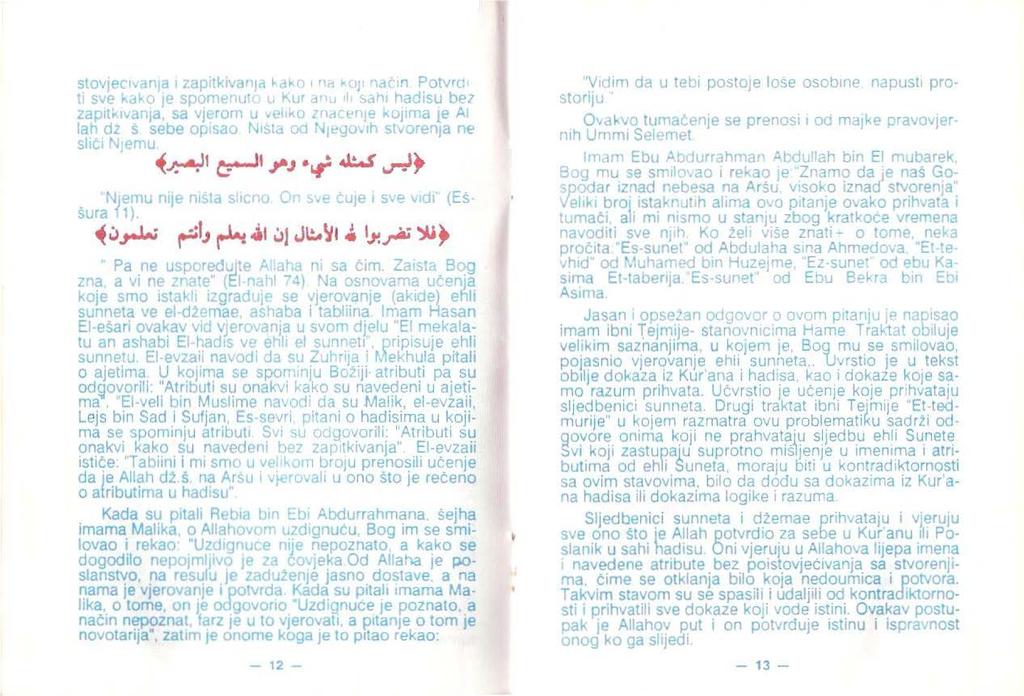 stovjećivanja i zapitkivanja kako i na koji način. Potvrdi-
ti sve kako je spomenuto u Kur'anu ili sahi hadisu bez
zapitkivanja, sa vjerom u veliko značenje kojima je Al-
lah dž. š. sebe opisao. Ništa od Njegovih stvorenja ne
sliči Njemu.
﴿ليس كمثله شيء وهو السميع البصير﴾
"Njemu nije ništa slično. On sve čuje i sve vidi" (Eš-
šura 11).
﴿فلا تضربوا لله الأمثال إن الله يعلم وأنتم تعلمون﴾
" Pa ne uspoređujte Allaha ni sa čim. Zaista Bog
zna, a vi ne znate" (El-nahl 74). Na osnovama učenja
koje smo istakli izgrađuje se vjerovanje (akide) ehli
sunneta ve el-džemae, ashaba i tabliina. Imam Hasan
El-ešari ovakav vid vjerovanja u svom djelu "El mekala-
tu an ashabi El-hadis ve ehli el sunneti", pripisuje ehli
sunnetu. El-evzaii navodi da su Zuhrija i Mekhula pitali
o ajetima. U kojima se spominju Božiji atributi pa su
odgovorili: "Atributi su onakvi kako su navedeni u ajeti-
ma", "El-veli bin Muslime navodi da su Malik, el-evzaii,
Lejs bin Sad i Sufjan, Es-sevri, pitani o hadisima u koji-
ma se spominju atributi. Svi su odgovorili: "Atributi su
onakvi kako su navedeni bez zapitkivanja". El-evzaii
ističe: "Tabiini i mi smo u velikom broju prenosili učenje
da je Allah dž.š. na Aršu i vjerovali u ono što je rečeno
o atributima u hadisu".
Kada su pitali Rebia bin Ebi Abdurrahmana, šejha
imama Malika, o Allahovom uzdignuću, Bog im se smi-
lovao i rekao: "Uzdignuće nije nepoznato, a kako se
dogodilo nepojmljivo je za čovjeka.Od Allaha je po-
slanstvo, na resulu je zaduženje jasno dostave, a na
nama je vjerovanje i potvrda. Kada su pitali imama Ma-
lika, o tome, on je odgovorio "Uzdignuće je poznato, a
način nepoznat, farz je u to vjerovati, a pitanje o tom je
novotarija", zatim je onome koga je to pitao rekao:
– 12 –
"Vidim da u tebi postoje loše osobine, napusti pro-
storiju."
Ovakvo tumačenje se prenosi i od majke pravovjer-
nih Ummi Selemet.
Imam Ebu Abdurrahman Abdullah bin El mubarek,
Bog mu se smilovao i rekao je:"Znamo da je naš Go-
spodar iznad nebesa na Aršu, visoko iznad stvorenja"
Veliki broj istaknutih alima ovo pitanje ovako prihvata i
tumači, ali mi nismo u stanju zbog kratkoće vremena
navoditi sve njih. Ko želi više znati o tome, neka
pročita."Es-sunet" od Abdulaha sina Ahmedova, "Et-te-
vhid" od Muhamed bin Huzejme, "Ez-sunet" od ebu Ka-
sima Et-taberija."Es-sunet" od Ebu Bekra bin Ebi
Asima.
Jasan i opsežan odgovor o ovom pitanju je napisao
imam ibni Tejmije- stanovnicima Hame. Traktat obiluje
velikim saznanjima, u kojem je, Bog mu se smilovao,
pojasnio vjerovanje ehli sunneta,. Uvrstio je u tekst
obilje dokaza iz Kur'ana i hadisa, kao i dokaze koje sa-
mo razum prihvata. Učvrstio je učenje koje prihvataju
sljedbenici sunneta. Drugi traktat ibni Tejmije "Et-ted-
murije" u kojem razmatra ovu problematiku sadrži od-
govore onima koji ne prahvataju sljedbu ehli Sunete.
Svi koji zastupaju suprotno mišljenje u imenima i atri-
butima od ehli Suneta, moraju biti u kontradiktornosti
sa ovim stavovima, bilo da dođu sa dokazima iz Kur'a-
na hadisa ili dokazima logike i razuma.
Sljedbenici sunneta i džemae prihvataju i vjeruju
sve ono što je Allah potvrdio za sebe u Kur'anu ili Po-
slanik u sahi hadisu. Oni vjeruju u Allahova lijepa imena
i navedene atribute bez poistovjećivanja sa stvorenji-
ma, čime se otklanja bilo koja nedoumica i potvora.
Takvim stavom su se spasili i udaljili od kontradiktorno-
sti i prihvatili sve dokaze koji vode istini. Ovakav postu-
pak je Allahov put i on potvrđuje istinu i ispravnost
onog ko ga slijedi.
– 13 –